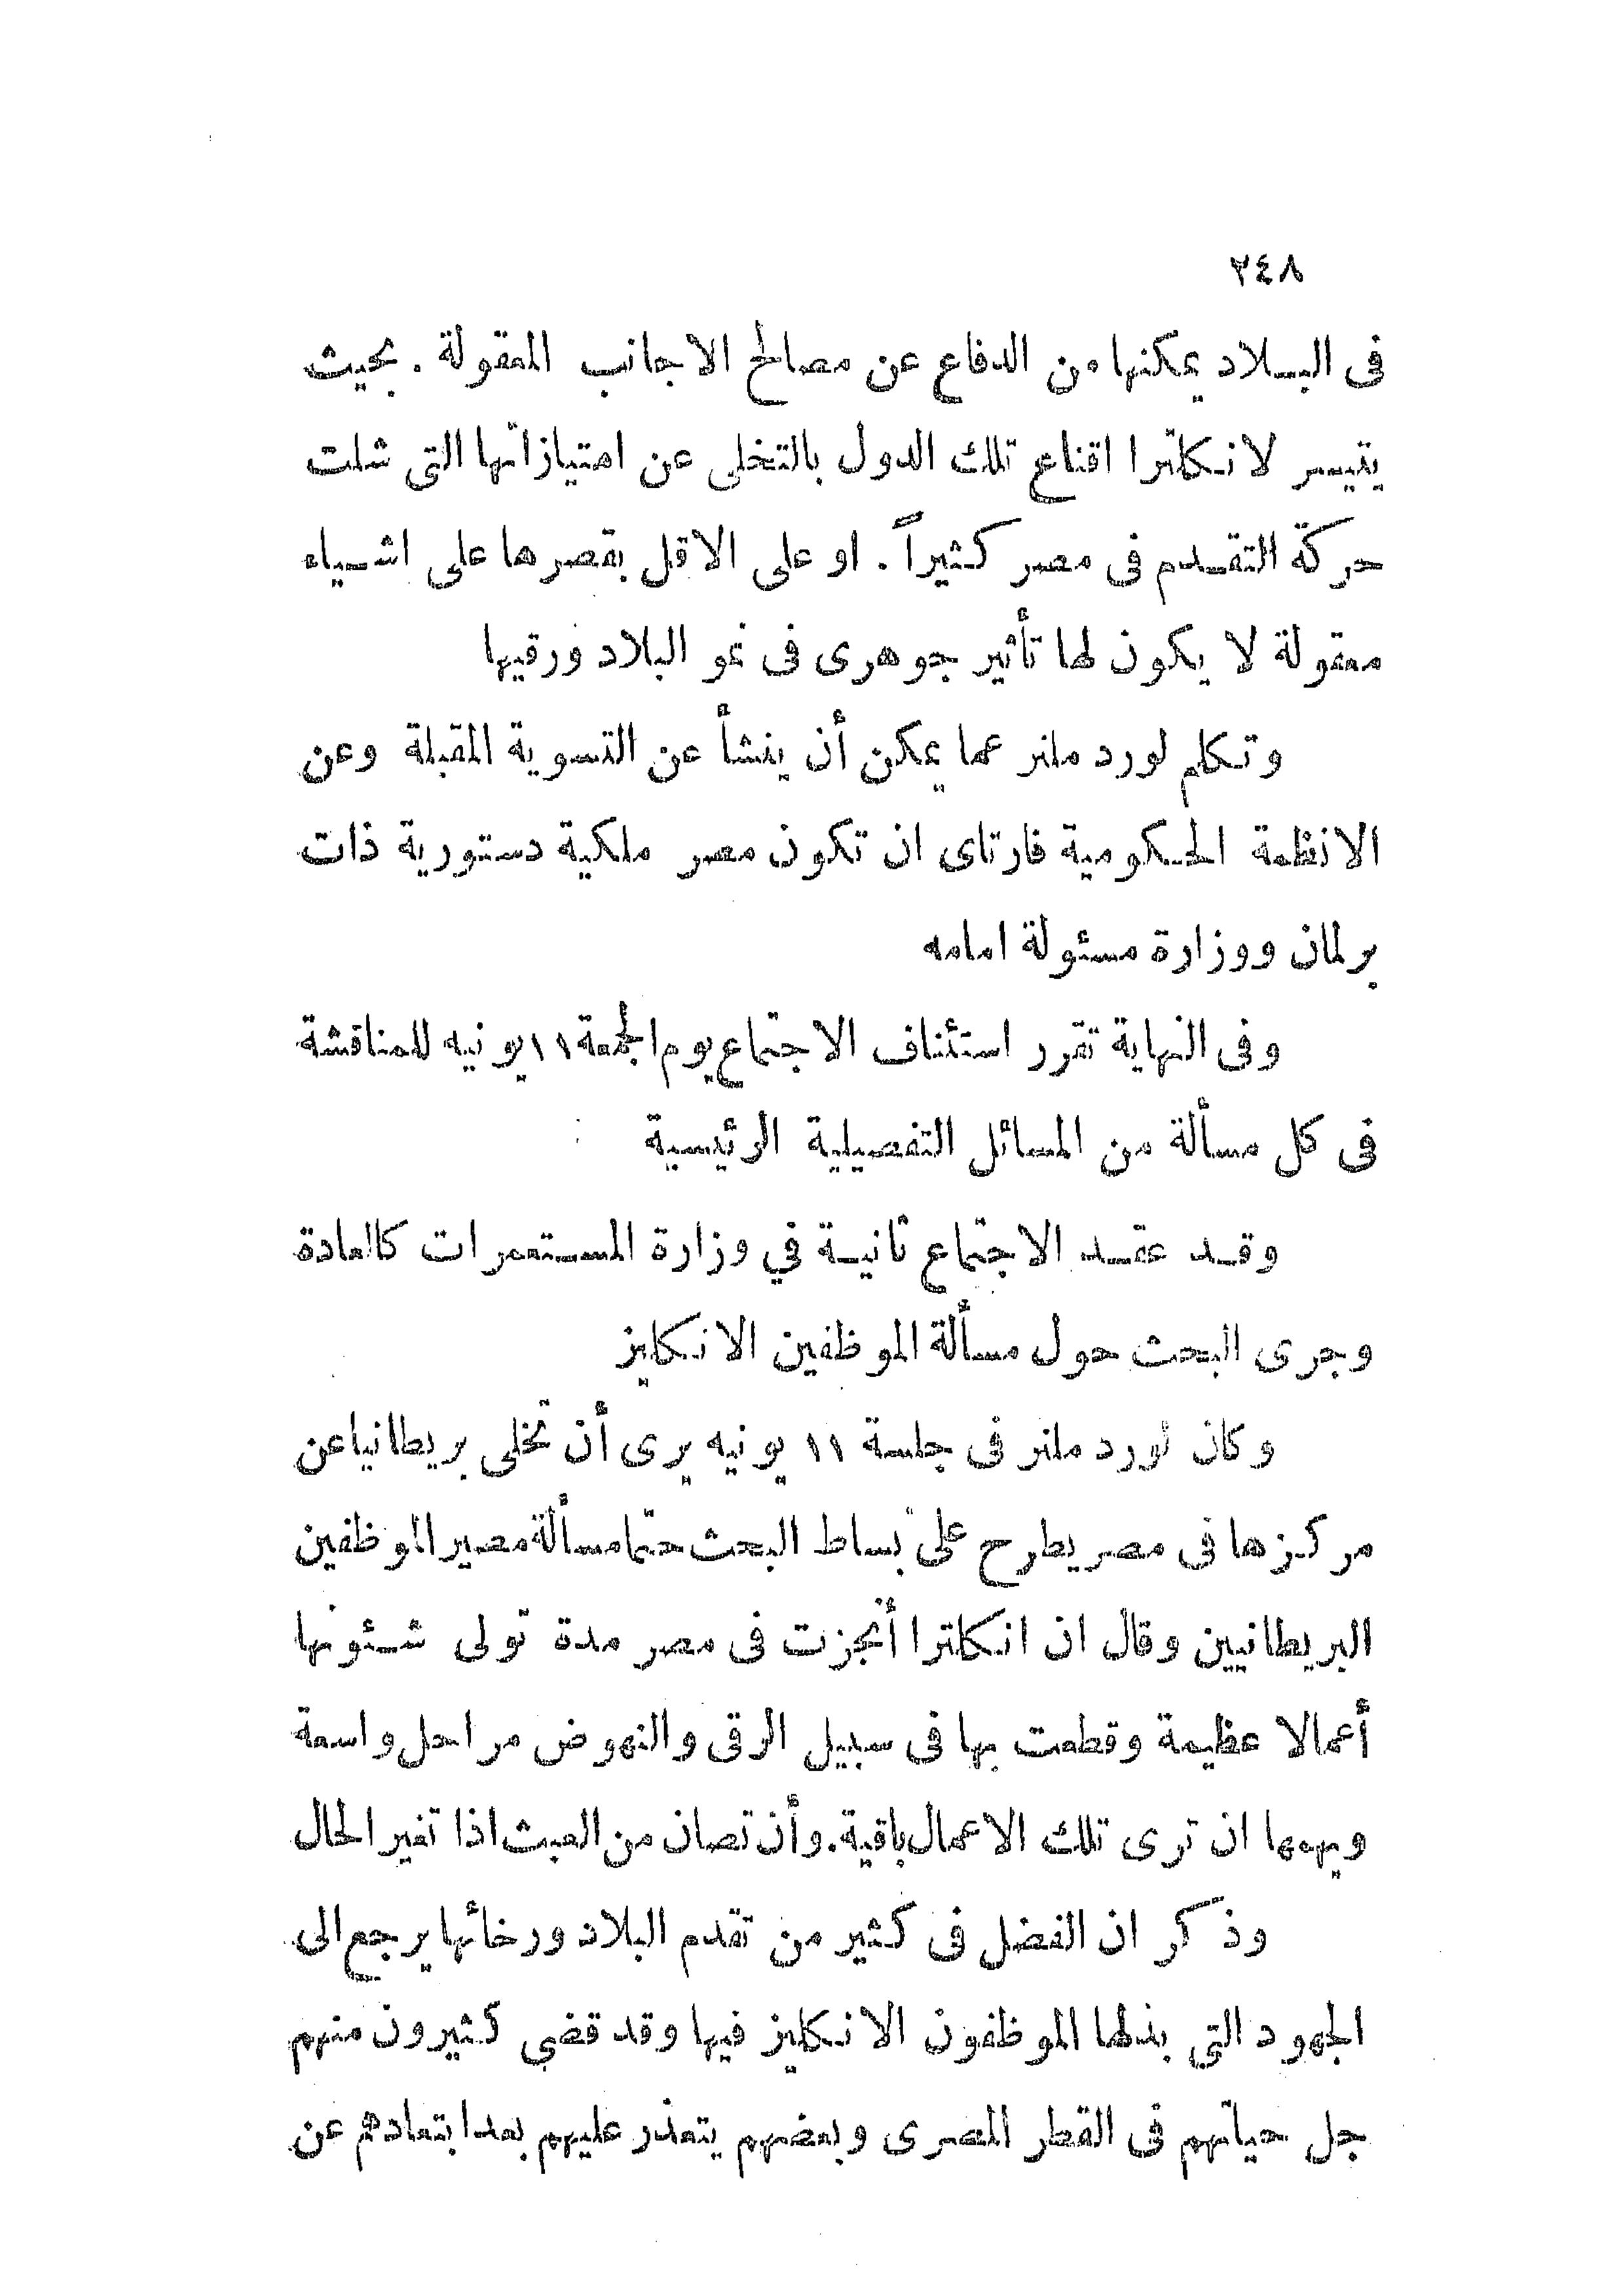 ٢٤٨
فى البلاد يمكنها من الدفاع عن مصالح الاجانب المعقولة . بحيث
يتيسر لانكلترا اقناع تلك الدول بالتخلى عن امتيازاتها التى شلت
حركة التقدم فى مصر كثيراً . او على الاقل بقصرها على اشياء
معقولة لا يكون لها تأثير جوهرى فى نمو البلاد ورقيها
وتكلم لورد ملنر عما يمكن أن ينشأ عن التسوية المقبلة وعن
الانظمة الحكومية فارتاى ان تكون مصر ملكية دستورية ذات
برلمان ووزارة مسئولة امامه
وفى النهاية تقرر استئناف الاجتماع يوم الجمعة ١١ يونيه للمناقشة
فى كل مسألة من المسائل التفصيلية الرئيسية
وقد عقد الاجتماع ثانية في وزارة المستعمرات كالعادة
وجرى البحث حول مسألة الموظفين الانكليز
وكان لورد ملنر فى جلسة ١١ يونيه يرى أن تخلى بريطانيا عن
مركزها فى مصر يطرح على بساط البحث حتما مسألة مصير الموظفين
البريطانيين وقال ان انكلترا أنجزت فى مصر مدة تولى شئونها
أعمالا عظيمة وقطعت بها فى سبيل الرقى والنهوض مراحل واسعة
ويهمها ان ترى تلك الاعمال باقية. وأن تصان من العبث اذا تغير الحال
وذكر ان الفضل فى كثير من تقدم البلاد ورخائها يرجع الى
الجهود التي بذلها الموظفون الانكليز فيها وقد قضي كثيرون منهم
جل حياتهم فى القطر المصرى وبعضهم يتعذر عليهم بعد ابتعادهم عن